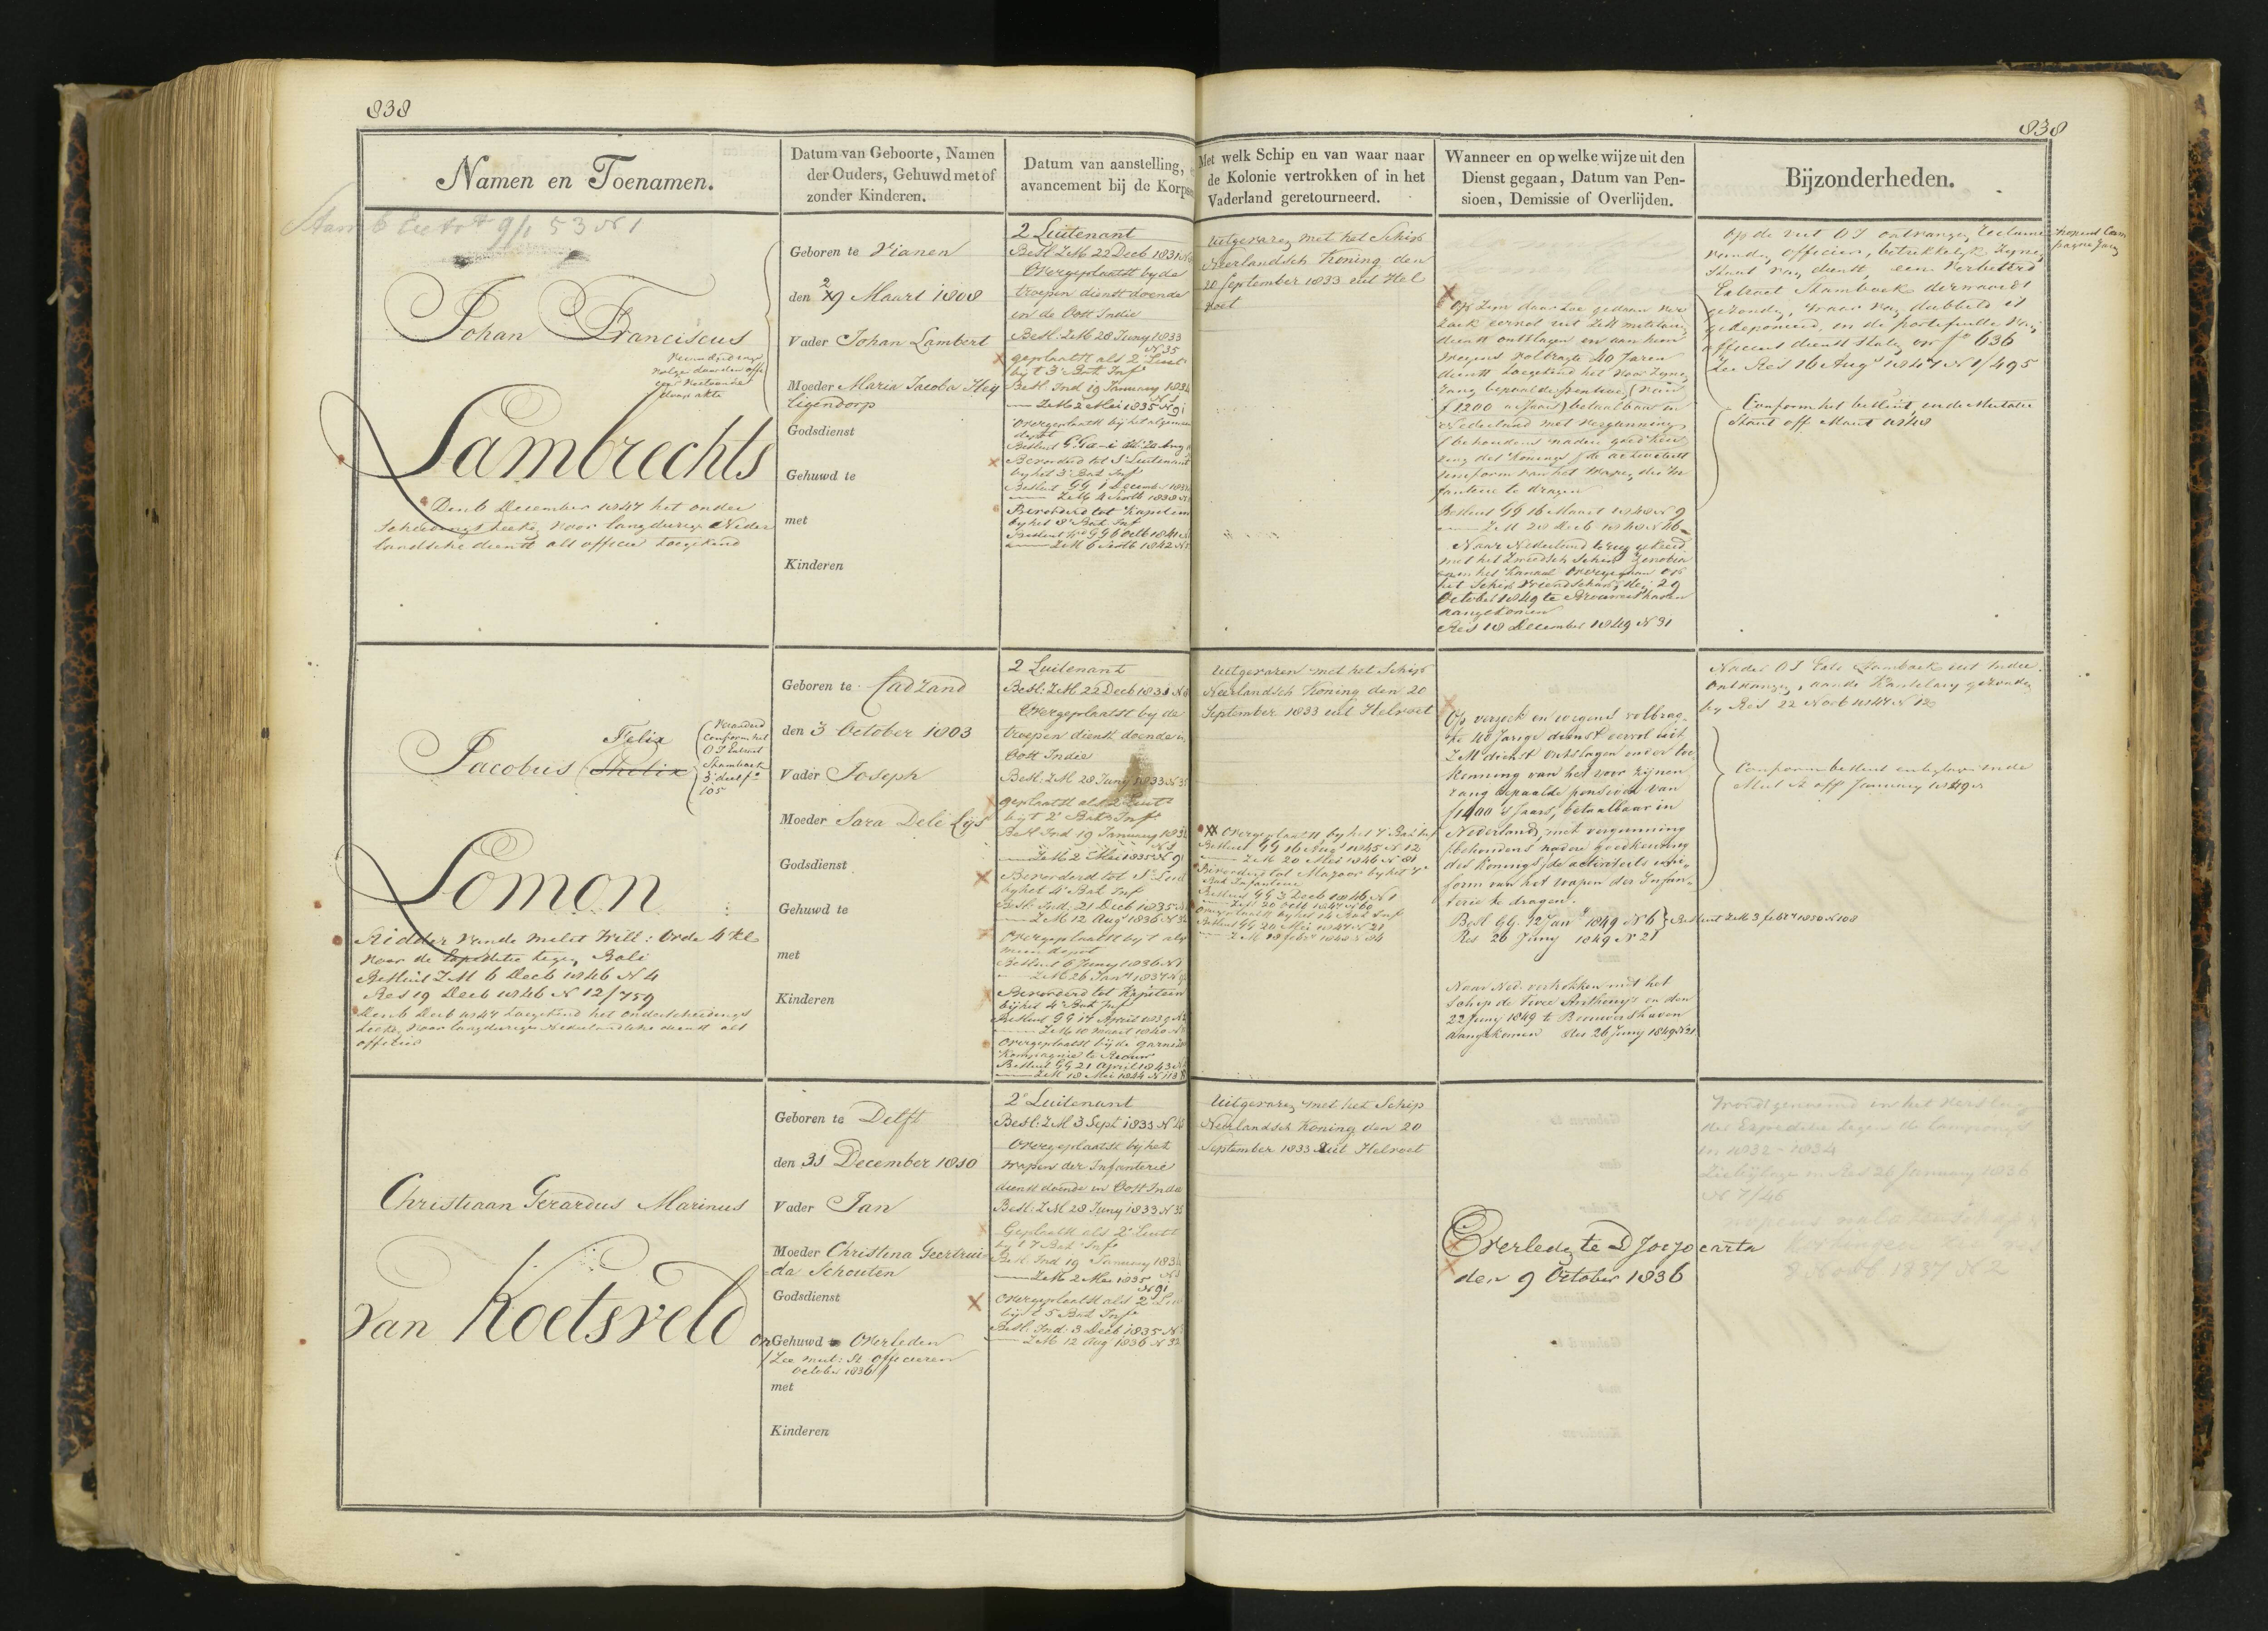 838
838
Namen en Toenamen.
Datum van Geboorte, Namen
der Ouders, Gehuwd met of
zonder Kinderen.
Datum van aanstelling,
avancement bij de Korpsen
Met welk Schip en van waar naar
de Kolonie vertrokken of in het
Vaderland geretourneerd.
Wanneer en op welke wijze uit den
Dienst gegaan, Datum van Pen-
sioen, Demissie of Overlijden.
Bijzonderheden.
9/1 53 N 1
Johan Franciscus
Lambrechts
Den 6 December 1847 het onder
scheidingsteeken voor langdurige Neder
landsche dienst als officier toegekend
Geboren te Vianen
den 29 Maart 1808
Vader Johan Lambert
Moeder Maria Jacoba Hey
ligendorp
Godsdienst
Gehuwd te
met
Kinderen
2 Luitenant
Besl. Z.M. 22 Decb 1831
Overgeplaatst by de
troepen dienst doende
in de Oost Indie
Besl. Z.M. 28 Juny 1833
N 35
geplaatst als 2e Luit
by t 3e Bat Inf
Besl. Ind 19 January 1834
Z.M. 2 Mei 1835 N 91
overgeplaatst by het algemeen
depot
Bevorderd tot 1e Luitenant
by het 3e Bat Inf
Besluit GG 1 December
Z.M. 4 Novb 1838
Bevorderd tot Kapitein
by het 8e Bat Inf
Besluit GG 6 Octb 1841
Z.M. 6 Novb 1842
Uitgevaren met het Schip
Neerlandsch Koning den
20 September 1833 uit Hel
voet
Op zyn daartoe gedaan ver
zoek eervol uit ZM militairen
dienst ontslagen en aan hem
wegens volbragte 40 Jaren
dienst toegekend het voor zynen
rang bepaalde pensioen (van
f 1200 's Jaars) betaalbaar in
Nederland met vergunning
(behoudens nadere goedkeu
ring des Konings) de activiteits
uniform van het wapen der In
fanterie te dragen
Besluit GG 16 Maart 1848 N 9
Z.M. 28 Decb 1848 N 46
Naar Nederland terug gekeerd
met het Zweedsch Schip Zenobia
in het Kanaal overgegaan op
het Schip Vriendschap, den 29
October 1849 te Brouwershaven
aangekomen
Res 18 December 1849 N 31
Op de uit O I ontvangen reclame
van den officier, betrekkelyk zynen
Staat van dienst, een verbeterd
Extract Stamboek derwaarts
gezonden, waar van dubbeld is
gedeponeerd in de portefeuille van
officieren dienst staten op fo 636
Zie Res 16 Augs 1847 N 1/495
Conform het besluit en de Mutatie
Staat off Maart 1848
Jacobus Felix
Veranderd
conform het
O I Extract
Stamboek
3e deel fo
105
Lomon
Ridder van de Milit Will: Orde 4 Kl
voor de Expeditie tegen Bali
Besluit Z.M 6 Decb 1846 N 4
Res 19 Decb 1846 N 12/759
Den 6 Decb 1847 toegekend het onderscheidings
teeken voor langdurige Nederlandsche dienst als
officier
Geboren te Cadzand
den 3 October 1803
Vader Joseph
Moeder Sara Dele Lijs
Godsdienst
Gehuwd te
met
Kinderen
2 Luitenant
Besl: Z.M. 22 Decb 1831 N
Overgeplaatst by de
troepen dienst doende in
Oost Indie
Besl: Z.M. 28 Juny 1833 N 35
geplaatst als 2e Luit
by t 2e Bat Inf
Besl Ind 19 January 1834
Z.M. 2 Mei 1835 N 91
Bevorderd tot 1e Luit
by het 4e Bat Inf
Besl: Ind: 21 Decb 1835
Z.M 12 Aug 1836 N 32
Overgeplaatst by t alge
meen depot
Besluit 6 Juny 1836 N 1
Z.M 26 Jany 1837
Bevorderd tot Kapitein
by het 4e Bat Inf
Besluit GG 17 April 1839
Z.M 10 Maart 1840
Overgeplaatst bij de garnizoe
Kompagnie te Riouw
Besluit GG 21 April 1843
Z.M 18 Mei 1844 N 113
Uitgevaren met het Schip
Neerlandsch Koning den 20
September 1833 uit Helvoet
Overgeplaatst by het 7 Bat Inf
Besluit GG 16 Aug 1845 N 12
Z.M 20 Mei 1846 N 81
Bevorderd tot Majoor by het 7e
Bat Infanterie
Besluit GG 3 Decb 1846 N 1
Z.M 20 Octb 1847 N 60
Overgeplaatst by het 14 Bat Inf
Besluit GG 24 Mei 1847 N 21
Z.M 18 Febr 1848 N 84
Op verzoek en wegens volbrag-
te 40 Jarige dienst eervol uit
Z.M dienst ontslagen onder toe
kenning van het voor zijnen
rang bepaalde pensioen van
f 1400 's Jaars, betaalbaar in
Nederland, met vergunning
(behoudens nadere goedkeuring
des Konings) de activiteits uni-
form van het wapen der Infan-
terie te dragen.
Besl GG. 12 Jany 1849 N 6
Besluit Z.M 3 Febr 1850 N 108
Res 26 Juny 1849 N 21
Naar Ned. vertrokken met het
schip de Twee Anthony's en den
22 Juny 1849 te Brouwershaven
aangekomen Res 26 Juny 1849 N 21
Nader O I Extr Stamboek uit Indie
ontvangen, aan de Kanselary gezonden
by Res 22 Novb 1847 N 12
Conform besluit en
Mut St off January 1849
Christiaan Gerardus Marinus
van Koetsveld
Geboren te Delft
den 31 December 1810
Vader Jan
Moeder Christina Geertrui-
da Schouten
Godsdienst
OnGehuwd Overleden
(Zie mut: St officieren
October 1836)
met
Kinderen
2e Luitenant
Besl: Z.M 3 Sept 1833 N
Overgeplaatst by het
wapen der Infanterie
dienst doende in Oost Indie
Besl: Z.M. 28 Juny 1833 N 35
Geplaatst als 2e Luit
by t 7 Bat Inf
Besl. Ind 19 January 1834
Z.M 2 Mei 1835 N 91
Overgeplaatst als 2 Luit
by t 5 Bat Inf
Besl. Ind: 3 Decb 1835 N
Z.M 12 Aug 1836 N 32
Uitgevaren met het Schip
Neerlandsch Koning den 20
September 1833 uit Helvoet
Overleden te Djocjocarta
den 9 October 1836
Wordt genoemd in het verslag
der Expeditie tegen de Lampongs
in 1832 - 1834
Zie bylage in Res 26 January 1836
N 7/46
8 Novb 1837 N